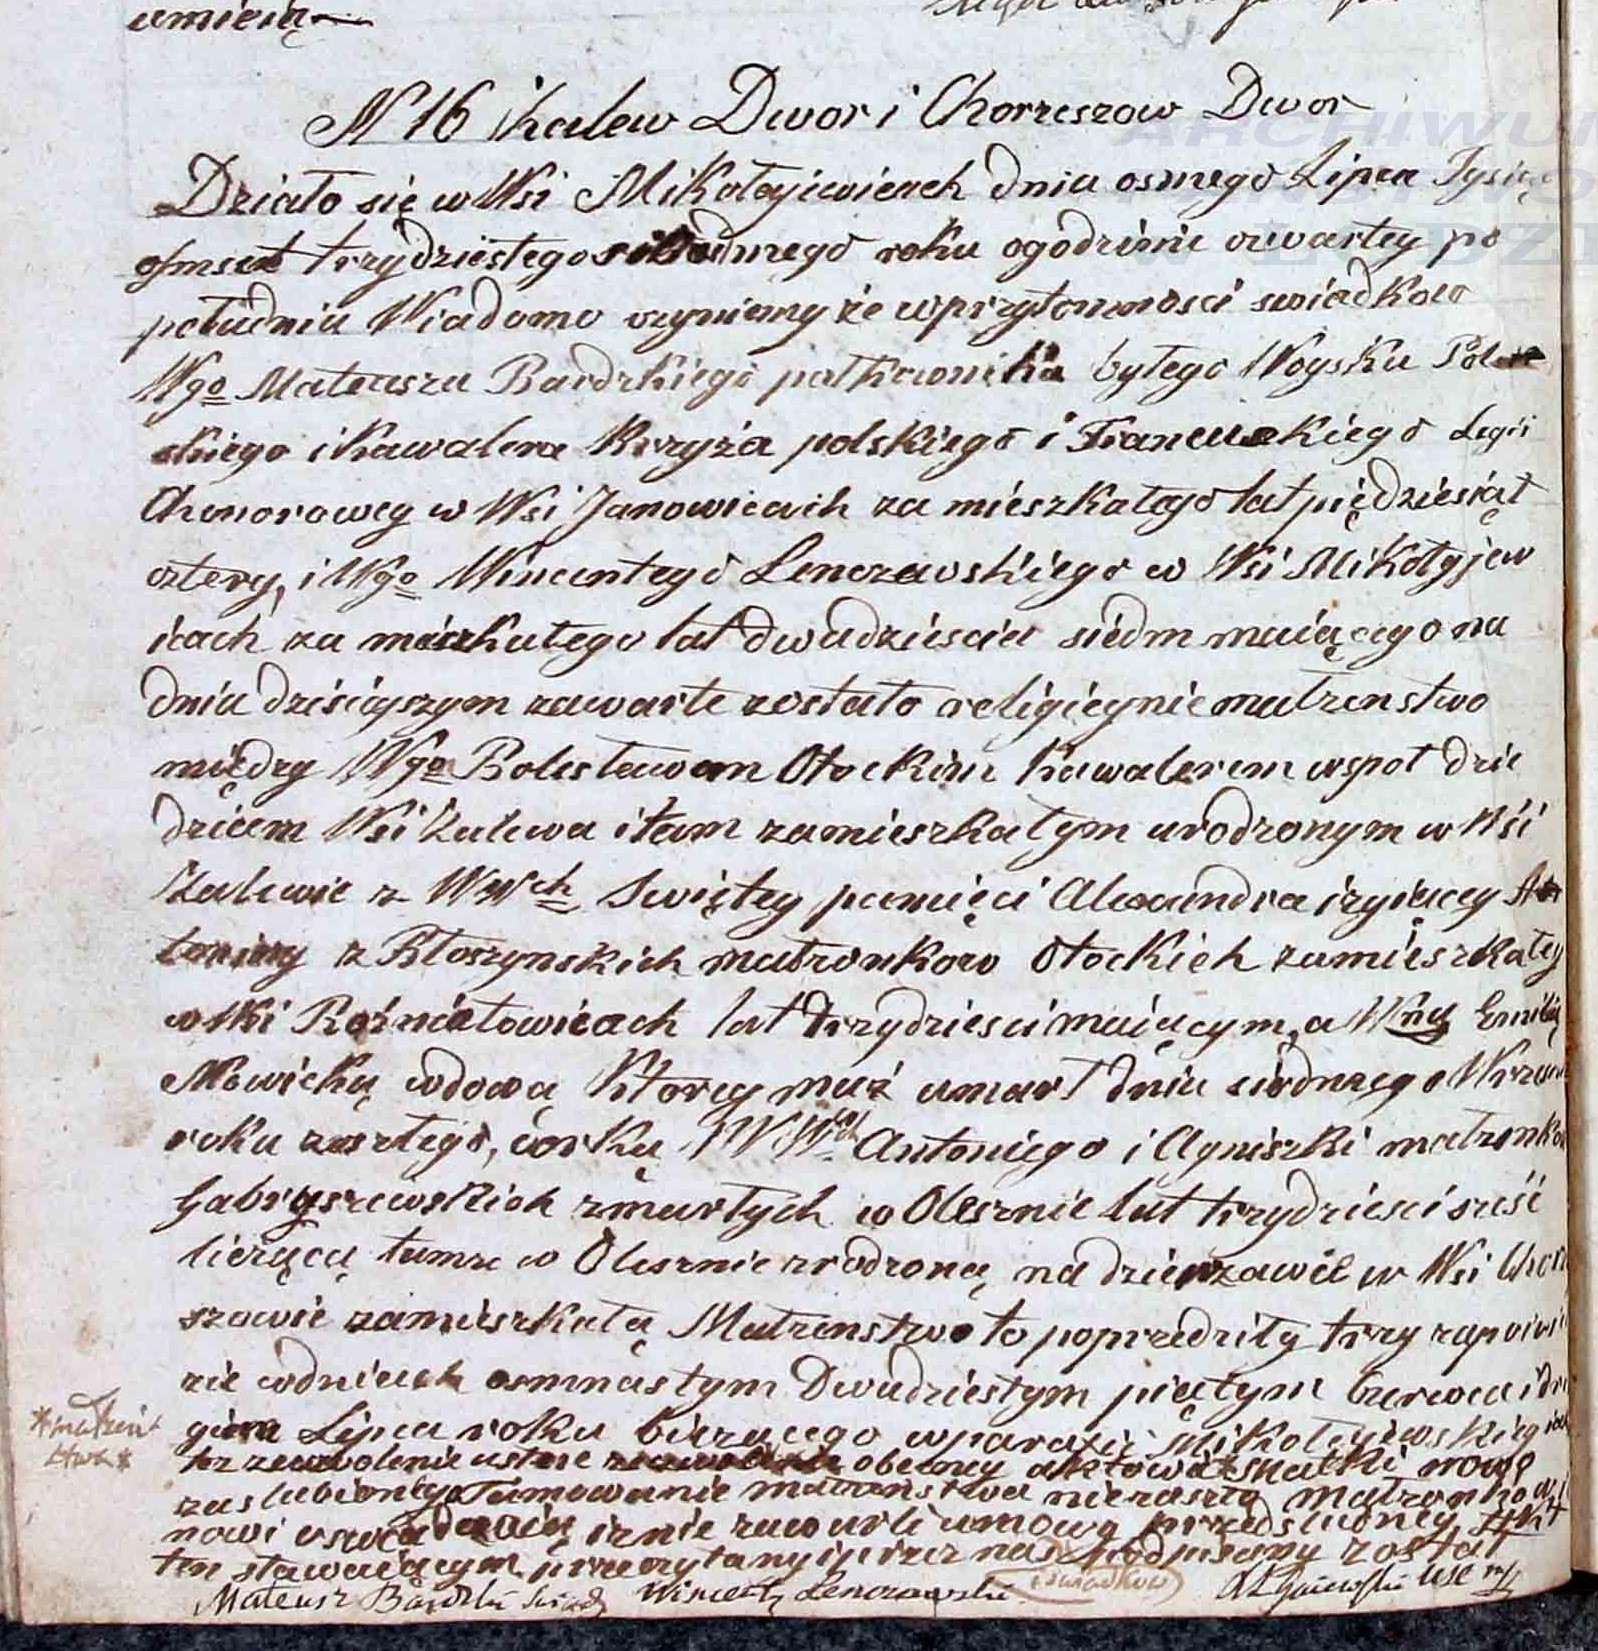 umieią
N 16 Kalew Dwor i Chorzeszow Dwor
Działo się w Wsi Mikołayiewicach dnia osmego Lipca Tysiąc
ośmset trzydziestego siodmego roku ogodzinie czwartey po
południu Wiadomo czyniemy że wprzytomnosci swiadkow
Wgo Mateusza Bardzkiego pułkownika byłego Woyska Pol
skiego i Kawalera Krzyża polskiego i Francuskiego Legii
Chonorowey w Wsi Janowicach za mieszkałego lat pięдziesiąt
cztery, i Wgo Wincentego Lenczewskiego w Wsi Mikołyjew
icach za mieszkałego lat dwadziescia siedm maiącego na
dniu dzisieyszym zawarte zostało religieynie małzenstwo
między Wgo Bolesławem Otockim Kawalerem wspoł dzie
dzicem Wsi Kalewa i tam zamieszkałym urodzonym w Wsi
Kalewie z WWch Swiętey pamięci Alexandra i zyiącey An
toniny z Kłoszynskich małzonkow Otockich zamieszkałey
w Wsi Rozniatowicach lat trzydziesci maiącym, a Wną Emilią
Nowicką wdową Ktorey mąż umarł dnia siodmego Wrzesnia
roku zeszłego, corką WWch Antoniego i Agnieszki małzonkow
Gabryszewskich zmarłych w Olesznie lat trzydziesci szesć
liczącą tamze w Olesznie zrodzoną, na dzierzawie w Wsi Chorze
szowie zamieszkałą Małzenstwo to poprzedziły trzy zapowie
zie wdniach osmnastym Dwudziestym piątym Czerwca i dru
gim Lipca roku bieżącego wparafii Mikołeyiewskiey iak
tez zezwolenie ustne obecney aktowi matki nowo
zaslubionego Tamowanie małzenstwa nie zaszło Małzonkowie
nowi oswiadczaią iż nie zawarli umowy przedslubney Akt
ten stawaiącym przeczytany i przez nas podpisany został
*małżeńs
stwa*
Mateusz Bardzki Wincenty Lenczewski i swiadkow